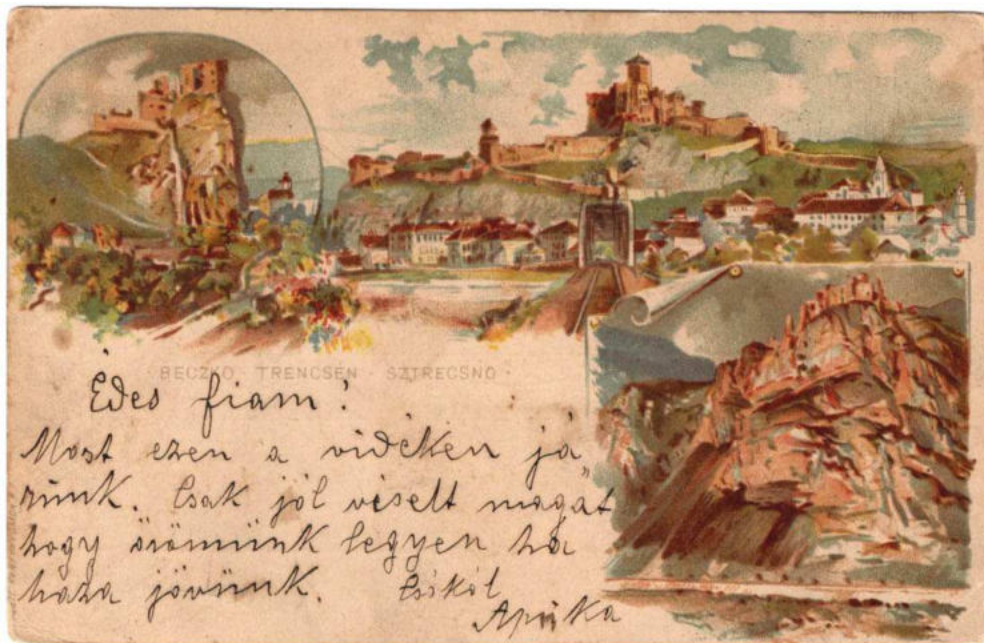 BECZKO · TRENCSÉN · SZTRECSNO ·
Édes fiam!
Most ezen a vidéken já„
runk. Csak jól viselt magát
hogy örömünk legyen ha
haza jövünk. Csókol
Apuka